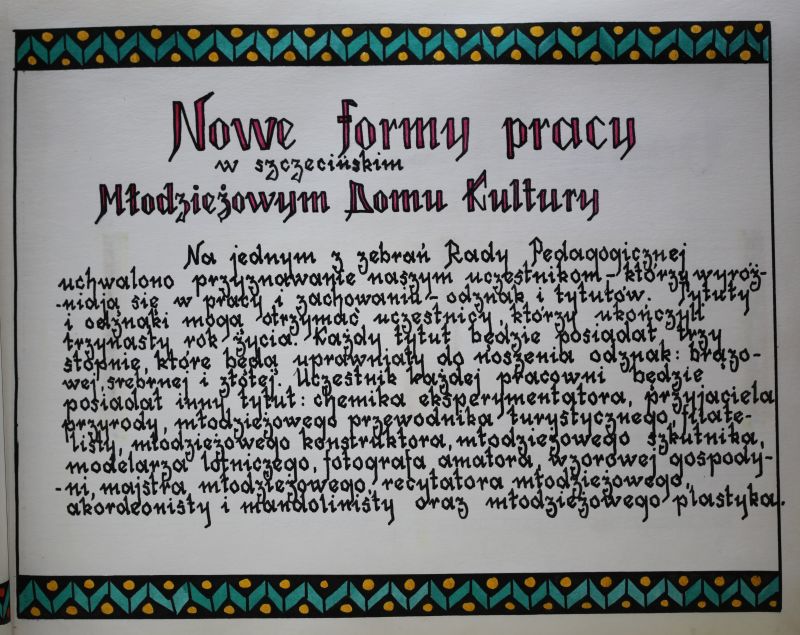 Nowe formy pracy
w szczecińskim
Młodzieżowym Domu Kultury
Na jednym z zebrań Rady Pedagogicznej
uchwalono przyznawanie naszym uczestnikom – którzy wyróż-
-niają się w pracy i zachowaniu – odznak i tytułów. Tytuły
i odznaki mogą otrzymać uczestnicy, którzy ukończyli
trzynasty rok życia. Każdy tytuł będzie posiadał trzy
stopnie, które będą uprawniały do noszenia odznak: brązo-
wej, srebrnej i złotej. Uczestnik każdej pracowni będzie
posiadał inny tytuł: chemika eksperymentatora, przyjaciela
przyrody, młodzieżowego przewodnika turystycznego, filate-
listy, młodzieżowego konstruktora, młodzieżowego szkutnika,
modelarza lotniczego, fotografa amatora, wzorowej gospody-
-ni, majstra młodzieżowego, recytatora młodzieżowego,
akordeonisty i mandolinisty oraz młodzieżowego plastyka.